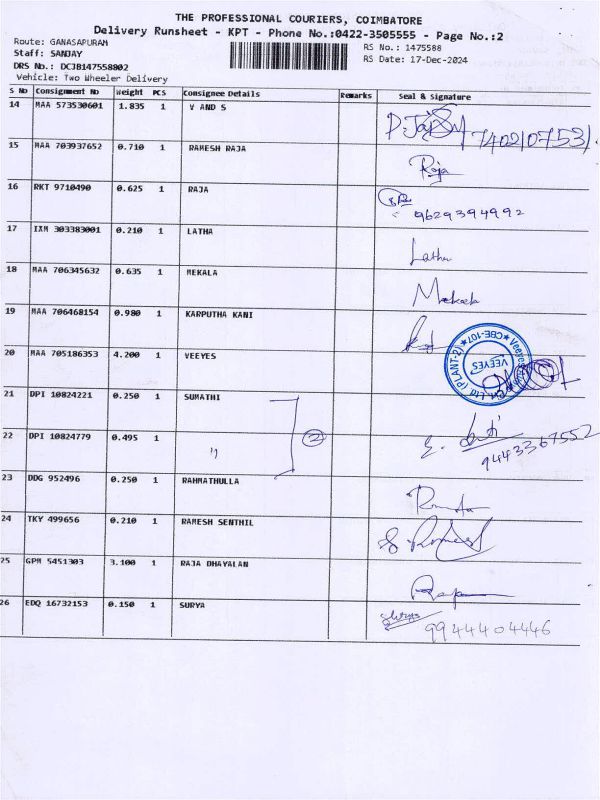 THE PROFESSIONAL COURIERS, COIMBATORE
Delivery Runsheet - KPT - Phone No.:0422-3505555 - Page No.:2
Route: GANASAPURAM
RS No.: 1475588
Staff: SANJAY
RS Date: 17-Dec-2024
DRS No.: DCJB147558802
Vehicle: Two Wheeler Delivery
S No Consignment No Weight PCS Consignee Details Remarks Seal & Signature
14 MAA 573530601 1.835 1 V AND S
15 MAA 703937652 0.710 1 RAMESH RAJA Raja
16 RKT 9710490 0.625 1 RAJA 9629394992
17 IXM 303383001 0.210 1 LATHA Latha
18 MAA 706345632 0.635 1 MEKALA Mekala
19 MAA 706468154 0.980 1 KARPUTHA KANI
20 MAA 705186353 4.200 1 VEEYES VEEYES (PLANT-2) ★ CBE-107 ★
21 DPI 10824221 0.250 1 SUMATHI
22 DPI 10824779 0.495 1 " 2 9443367552
23 DDG 952496 0.250 1 RAHMATHULLA
24 TKY 499656 0.210 1 RAMESH SENTHIL
25 GPM 5451303 3.100 1 RAJA DHAYALAN
26 EDQ 16732153 0.150 1 SURYA Surya 9944404446